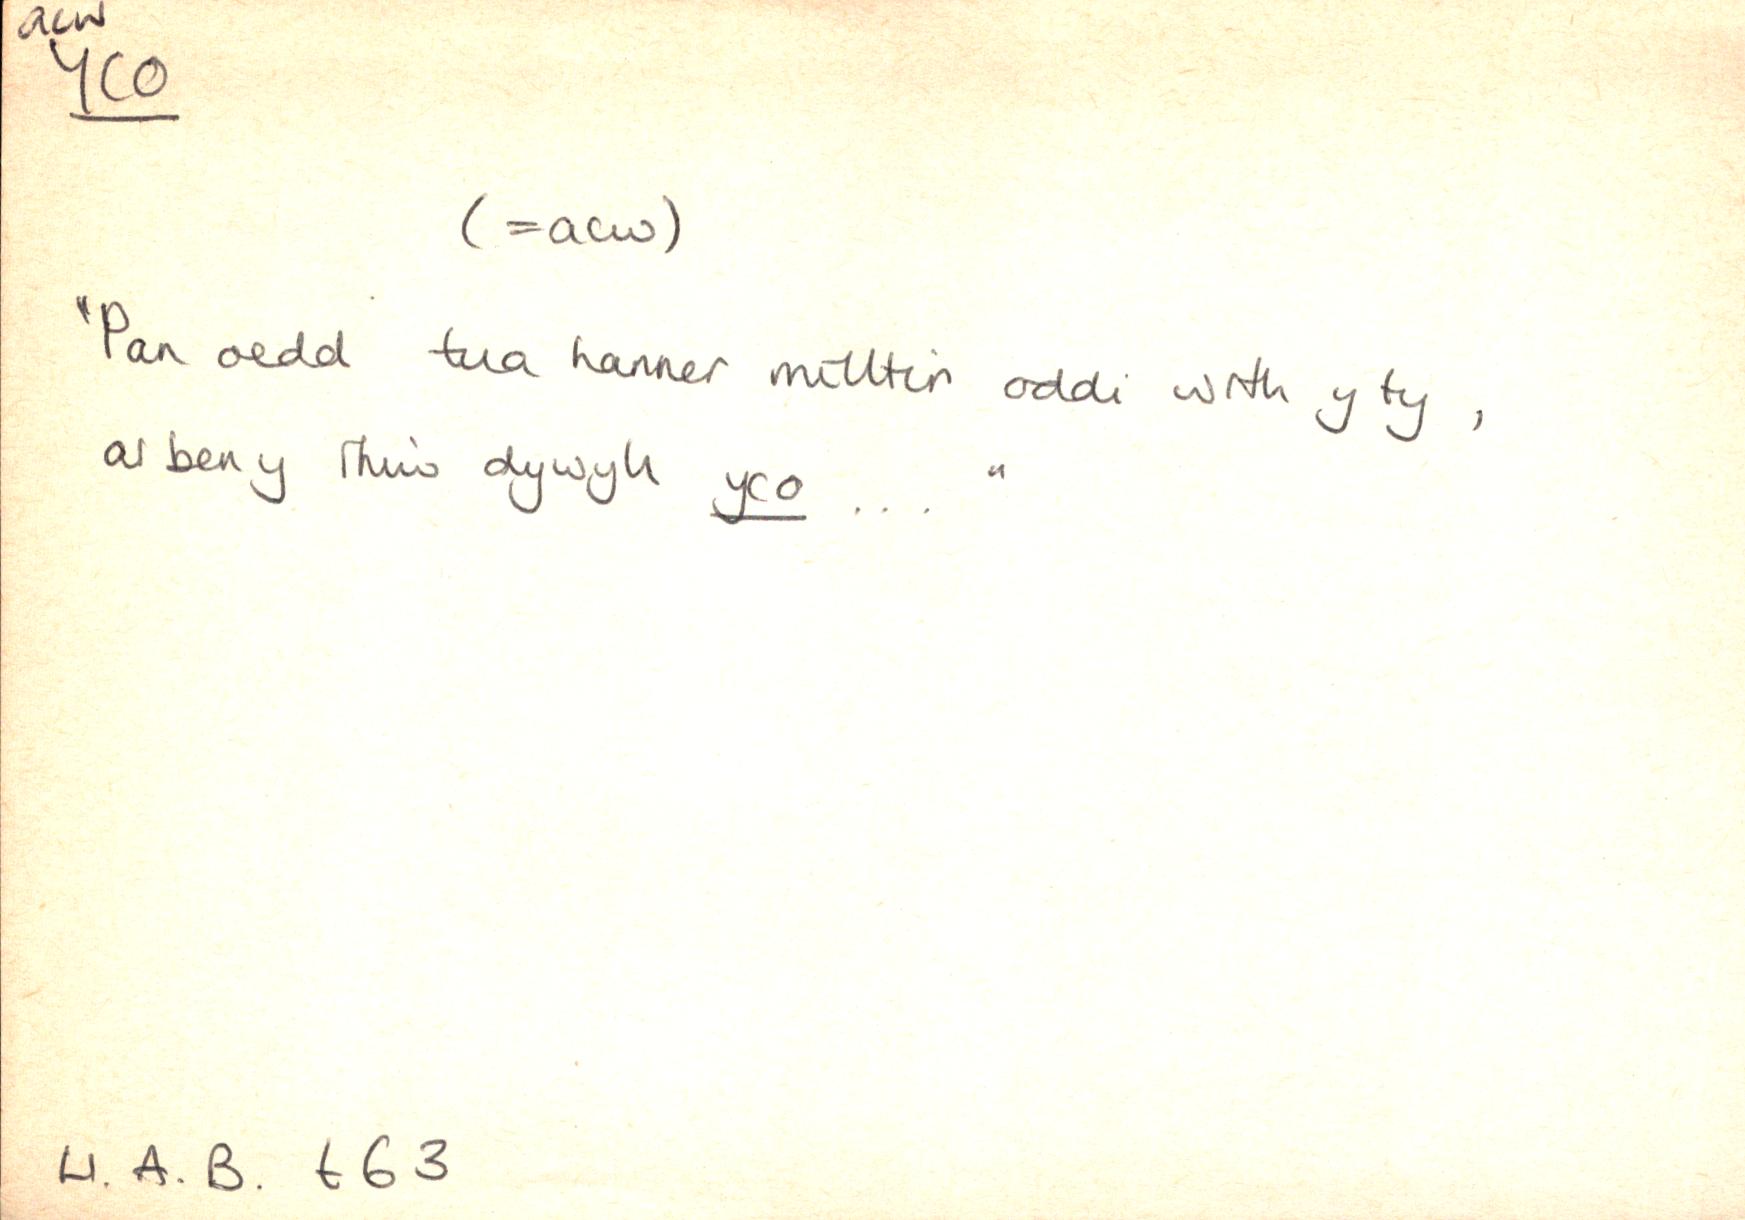 acw
YCO
(=acw)
"Pan oedd tua hanner milltir oddi wrth y ty,
ar ben y rhiw dywyll yco ... "
Ll. A. B. t 63